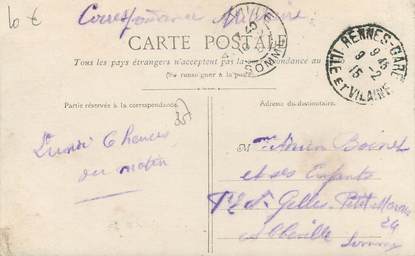 10 €
Correspondance Militaire
CARTE POSTALE
Tous les pays étrangers n'acceptent pas la correspondance au
(Se renseigner à la poste)
RENNES-GARE
9 45
9 -2
15
ILLE ET VILAINE
SOMME
Partie réservée à la correspondance
Adresse du destinataire.
Lundi 6 heures
du matin
M
Boinet
et ses Enfants
St Gilles Petit
24
Abbeville
Somme